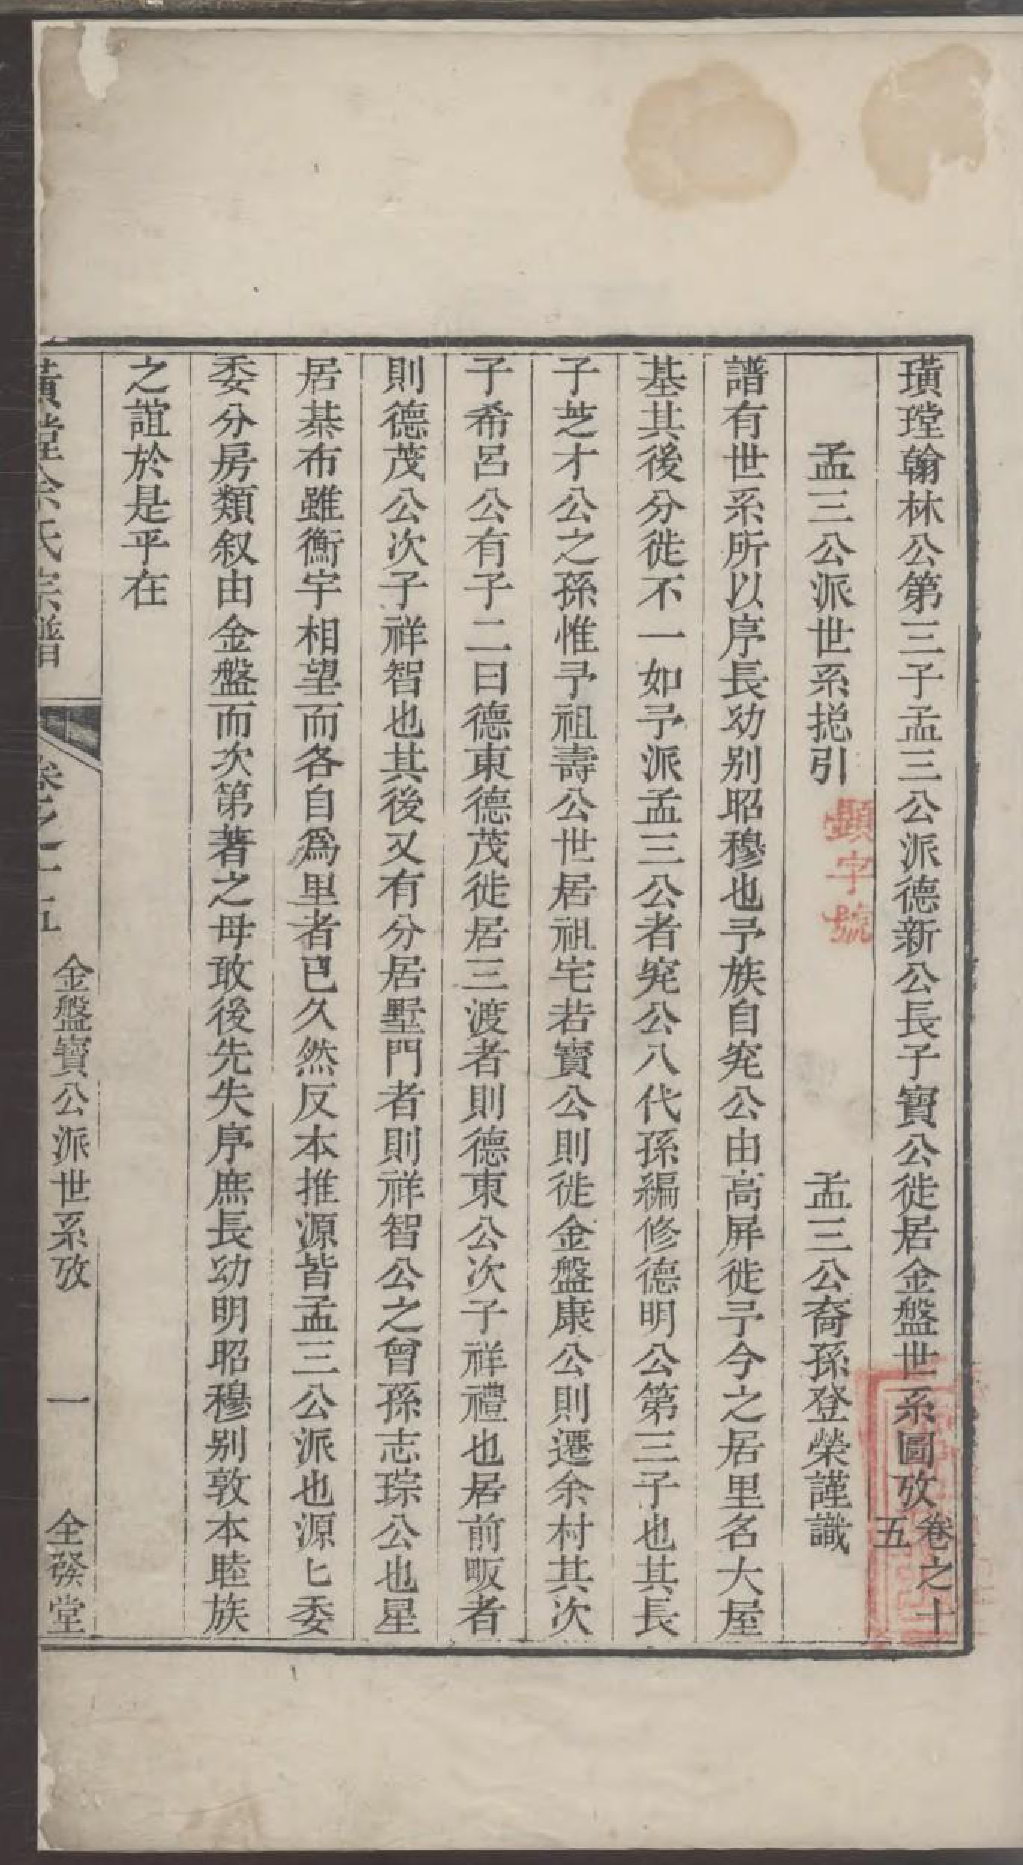 璜瑝翰林公第三子孟三公派德新公長子寶公徙居金盤世系圖攷卷之十五
孟三公派世系捴引 孟三公裔孫登榮謹識
顯字號
譜有世系所以序長幼别昭穆也予族自兖公由高屏徙予今之居里名大屋
基其後分徙不一如予派孟三公者兖公八代孫編修德明公第三子也其長
子芝才公之孫惟予祖壽公世居祖宅若寶公則徙金盤康公則遷余村其次
子希呂公有子二曰德東德茂徙居三渡者則德東公次子祥禮也居前畈者
則德茂公次子祥智也其後又有分居墅門者則祥智公之曾孫志琮公也星
居棊布雖衡宇相望而各自爲里者已久然反本推源皆孟三公派也源匕委
委分房類叙由金盤而次第著之毋敢後先失序庶長幼明昭穆别敦本睦族
之誼於是乎在
余氏宗譜 卷之十五 金盤寶公派世系攷 一 全發堂